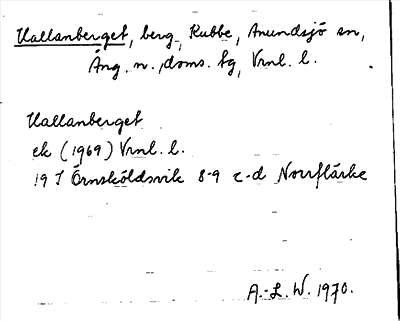 Hallanberget, berg, Kubbe, Anundsjö sn,
Ång. n., doms. tg, Vrnl. l.
Hallanberget
ek (1969) Vrnl. l.
19 I Örnsköldsvik 8-9 c-d Norrflärke
A.-L. W. 1970.